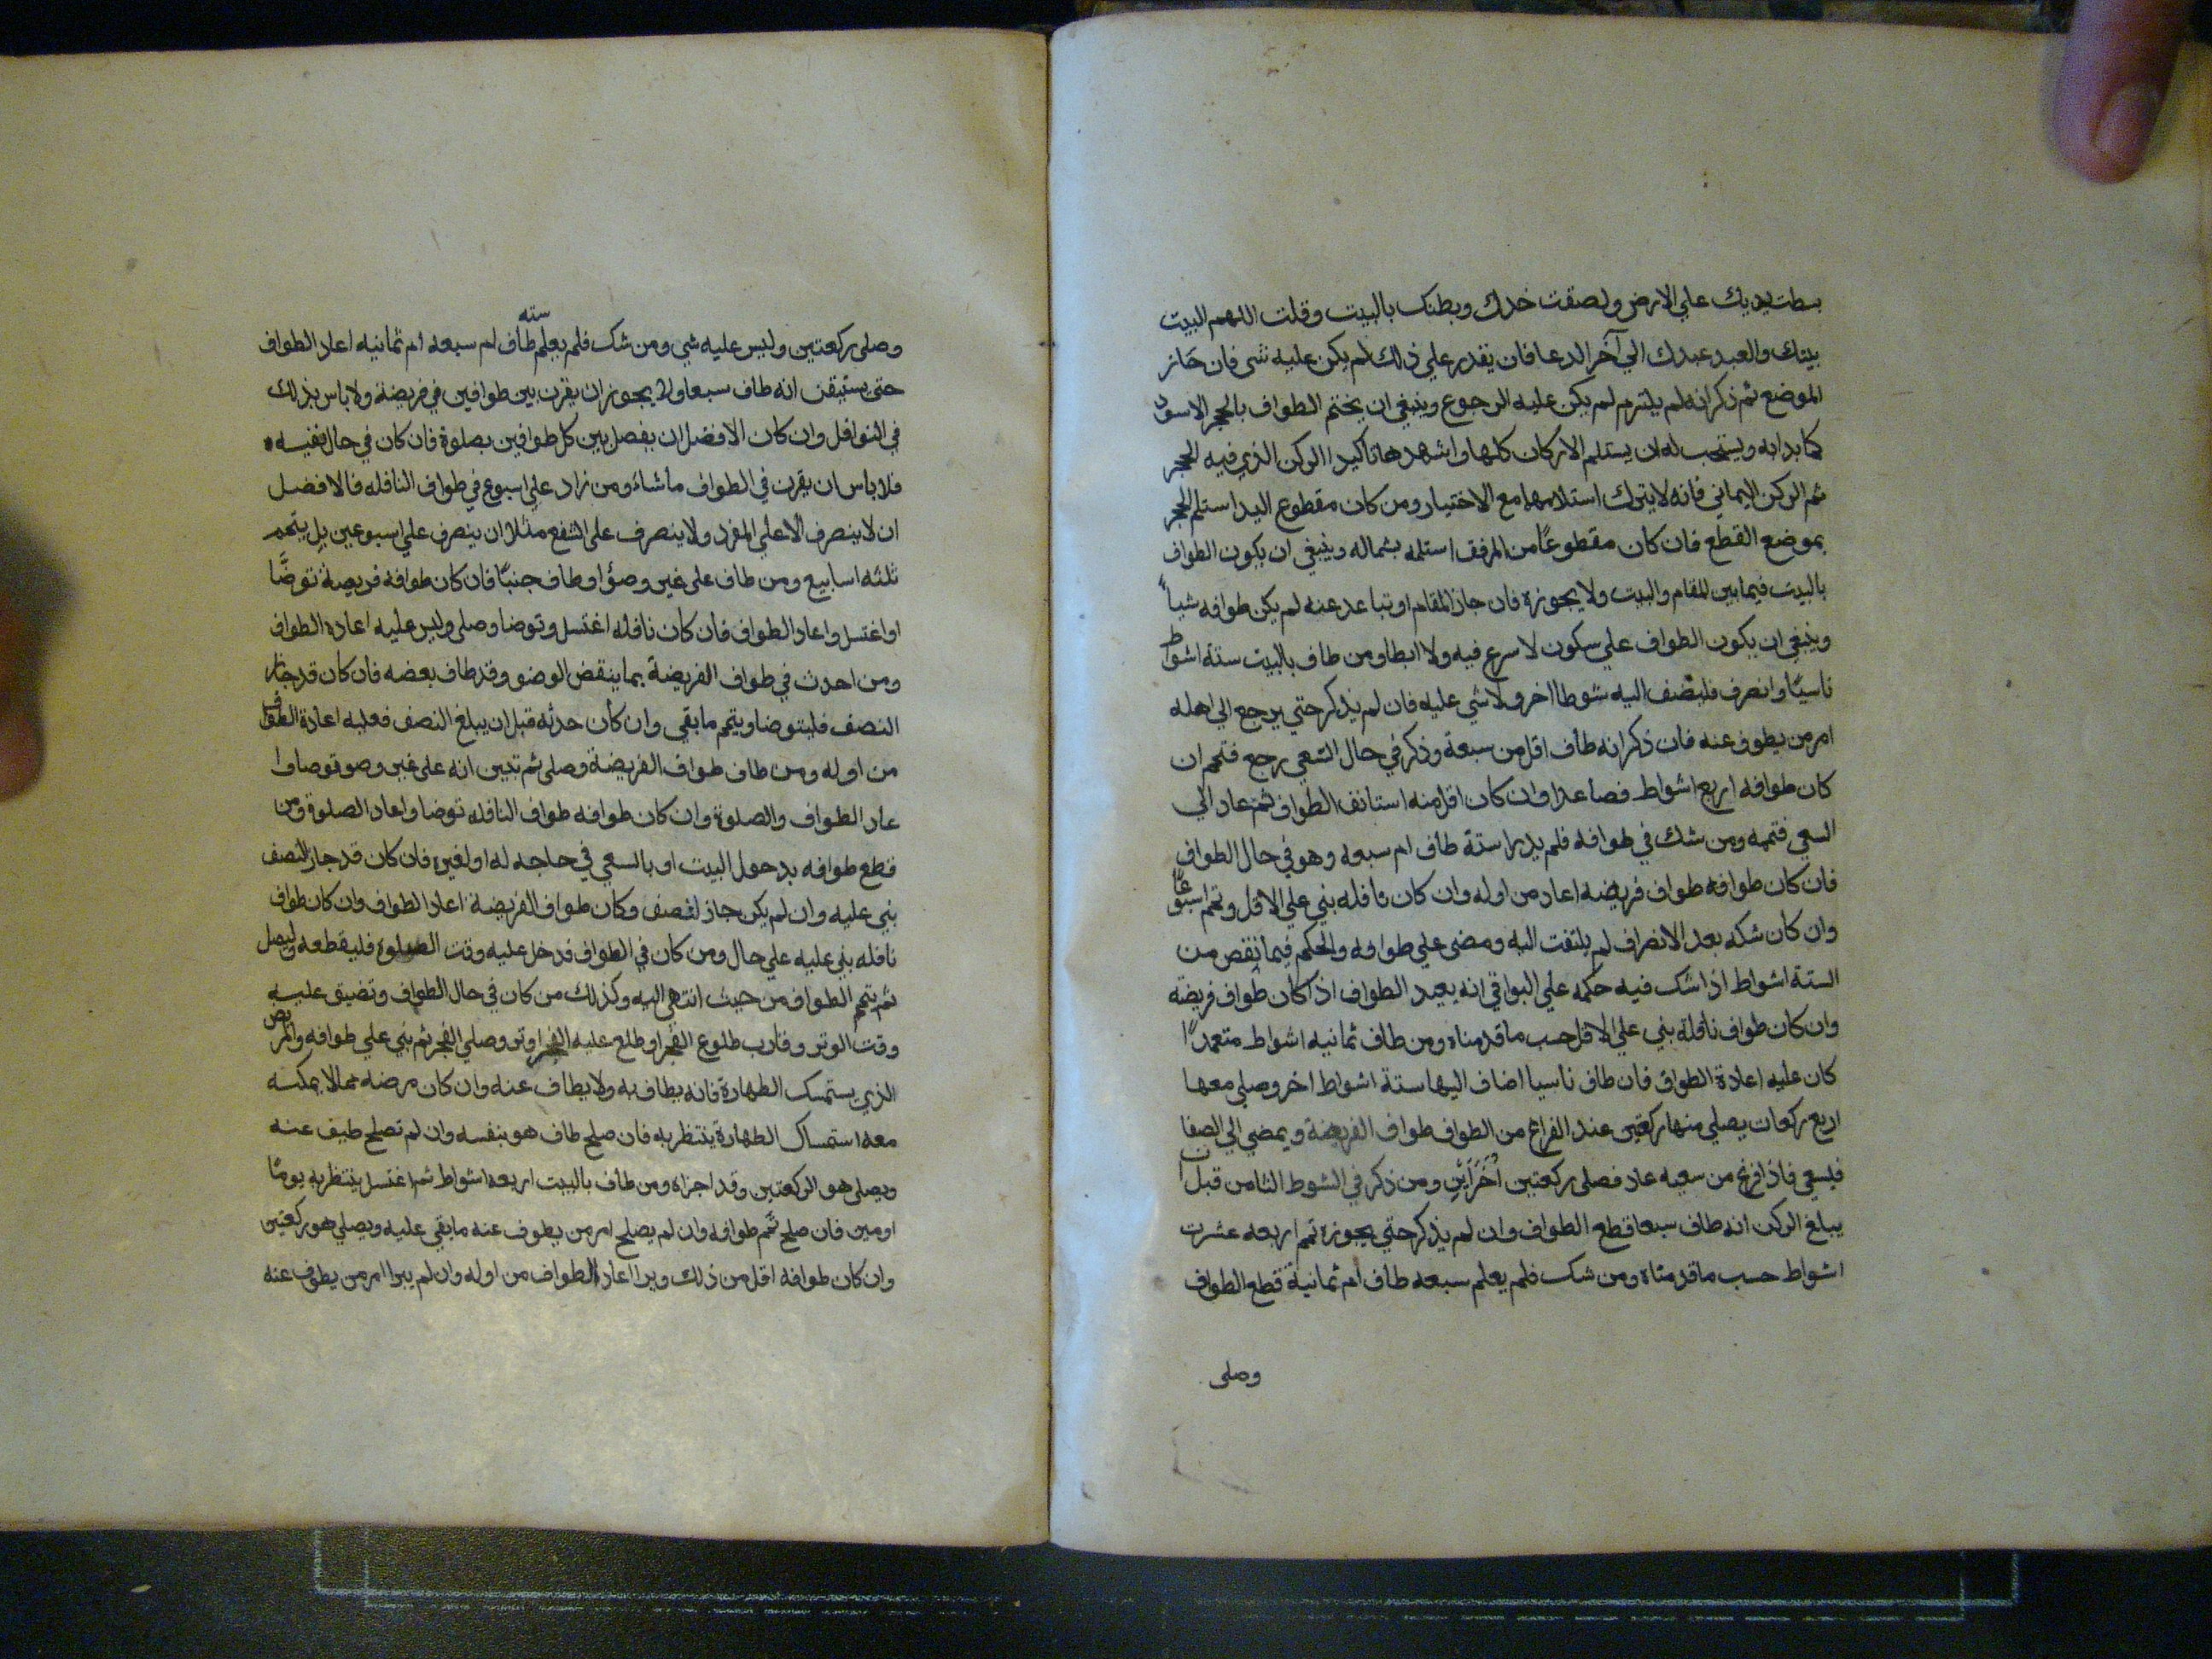 بسطت يديك علي الارض ولصقت خدك وبطنك بالبيت وقلت اللهم البيت
بيتك والعبد عبدك الي آخر الدعا فان يقدر علي ذلك لم يكن عليه شى فان جاز
الموضع ثم ذكر انه لم يلتزم لم يكن عليه الرجوع وينبغي ان يختم الطواف بالحجر الاسود
كما بدا به ويستحب له ان يستلم الاركان كلها واشهدها تاكيدا الركن الذي فيه الحجر
ثم الركن اليماني فانه لا يترك استلامهما مع الاختيار ومن كان مقطوع اليد استلم الحجر
بموضع القطع فان كان مقطوعًا من المرفق استلمه بشماله وينبغي ان يكون الطواف
بالبيت فيما بين المقام والبيت ولا يجوزه فان جاز المقام او تباعد عنه لم يكن طوافه شياً
وينبغي ان يكون الطواف علي سكون لا سرع فيه ولا ابطا ومن طاف بالبيت ستة اشواط
ناسيًا وانصرف فليضف اليه شوطا اخر ولا شي عليه فان لم يذكر حتي يرجع الي اهله
امر من يطوف عنه فان ذكر انه طاف اقل من سبعة وذكر في حال السعي رجع فتمم ان
كان طوافه اربع اشواط فصاعدا وان كان اقل منه استانف الطواف ثم عاد الي
السعي فتممه ومن شك في طوافه فلم يدر استة طاف ام سبعه وهو في حال الطواف
فان كان طوافه طواف فريضه اعاد من اوله وان كان نافله بني علي الاقل وتمم اسبوعًا
وان كان شكه بعد الانصراف لم يلتفت اليه ومضى علي طوافه والحكم فيما نقص من
الستة اشواط اذا شك فيه حكمه علي البواقي انه يعيد الطواف اذا كان طواف فريضة
وان كان طواف نافلة بني علي الاقل حسب ما قدمناه ومن طاف ثمانيه اشواط متعمدًا
كان عليه اعادة الطواف فان طاف ناسيا اضاف اليها ستة اشواط اخر وصلي معها
اربع ركعات يصلي منها ركعتين عند الفراغ من الطواف طواف الفريضة ويمضي الي الصفا
فيسعي فاذا فرغ من سعيه عاد فصلى ركعتين اخراين ومن ذكر في الشوط الثامن قبل ان
يبلغ الركن انه طاف سبعا قطع الطواف وان لم يذكر حتي يجوزه تمم اربعه عشرت
اشواط حسب ما قدمناه ومن شك فلم يعلم سبعه طاف ام ثمانية قطع الطواف
وصلى
وصلى ركعتين وليس عليه شي ومن شك فلم يعلم سته طاف ام سبعه ام ثمانيه اعاد الطواف
حتى يستيقن انه طاف سبعا ولا يجوز ان يقرن بين طوافين في فريضة ولا باس بذلك
في النوافل وان كان الافضل ان يفصل بين كل طوافين بصلوة فان كان في حال
فلا باس ان يقرن في الطواف ما شاء ومن زاد علي اسبوع في طواف النافله فالافضل
ان لا ينصرف الا علي المفرد ولا ينصرف على الشفع مثلا ان ينصرف علي اسبوعين بل يتمم
ثلثه اسابيع ومن طاف على غير وضؤ او طاف جنبًا فان كان طوافه فريضة توضَّا
او اغتسل واعاد الطواف فان كان نافله اغتسل وتوضا وصلى وليس عليه اعاده الطواف
ومن احدث في طواف الفريضة بما ينقض الوضو وقد طاف بعضه فان كان قد جاز
النصف فليتوضا ويتمم ما بقي وان كان حدثه قبل ان يبلغ النصف فعليه اعادة الطواف
من اوله ومن طاف طواف الفريضة وصلى ثم تبين انه على غير وضو توضا وا
عاد الطواف والصلوة وان كان طوافه طواف النافله توضا واعاد الصلوة ومن
قطع طوافه بدخول البيت او بالسعي في حاجه له او لغيره فان كان قد جاز النصف
بني عليه وان لم يكن جاز لنصف وكان طواف الفريضة اعاد الطواف وان كان طواف
نافله بني عليه علي حال ومن كان في الطواف فدخل عليه وقت الصلوة فليقطعه وليصل
ثم يتمم الطواف من حيث انتهى اليه وكذلك من كان في حال الطواف وتضيق عليه
وقت الوتر وقارب طلوع الفجر او طلع عليه الفجر اوتر وصلي الفجر ثم بني علي طوافه والمريض
الذي يستمسك الطهارة فانه يطاف به ولا يطاف عنه وان كان مرضه مما لا يمكنه
معه استمساك الطهارة ينتظر به فان صلح طاف هو بنفسه وان لم تصلح طيف عنه
ويصلى هو الركعتين وقد اجزاه ومن طاف بالبيت اربعه اشواط ثم اغتسل ينتظر به يومًا
او مين فان صلح تمم طوافه وان لم يصلح امر من يطوف عنه ما بقي عليه ويصلي هو ركعتين
وان كان طوافه اقل من ذلك وبرا اعاد الطواف من اوله وان لم يبرا امر من يطوف عنه